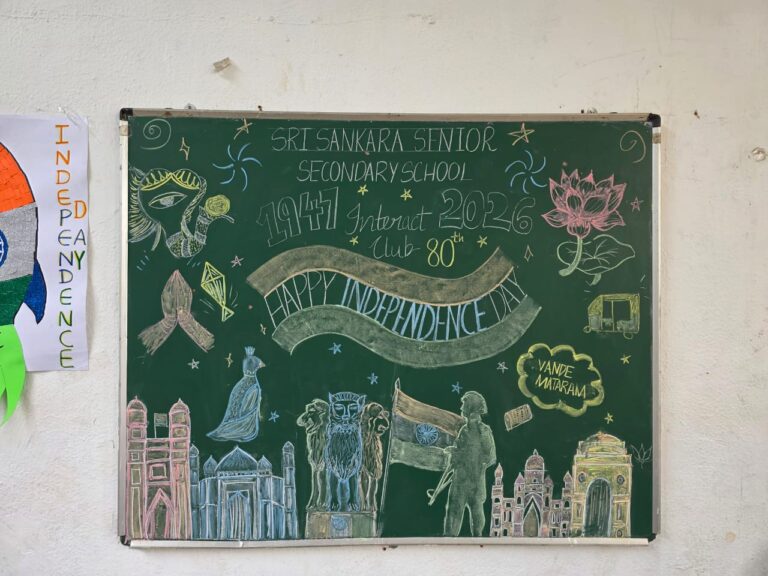 SRI SANKARA SENIOR
SECONDARY SCHOOL
1947 Interact 2026
Club 80th
HAPPY INDEPENDENCE DAY
VANDE
MATARAM
INDEPENDENCE
DAY